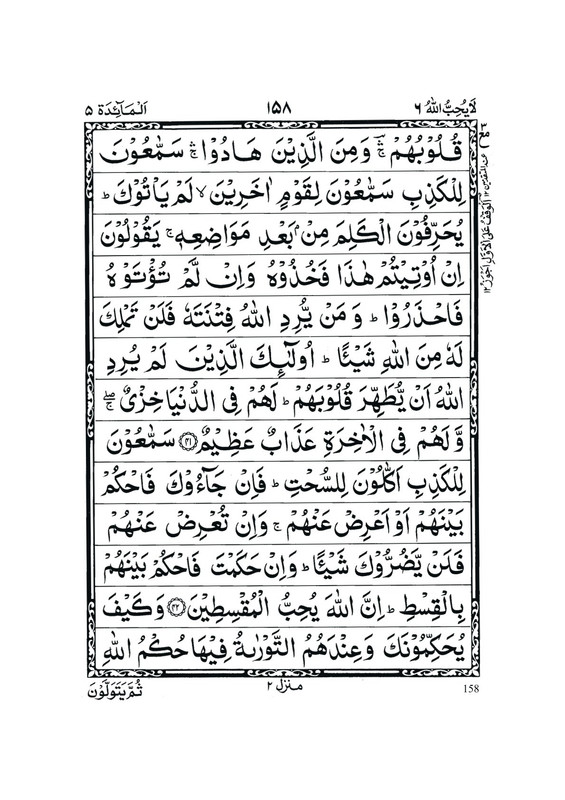 لَا يُحِبُّ اللهُ ٦
١٥٨
اَلْمَآئِدَة ٥
قُلُوْبُهُمْ ۛۚ وَمِنَ الَّذِيْنَ هَادُوْا ۛۚ سَمّٰعُوْنَ
لِلْكَذِبِ سَمّٰعُوْنَ لِقَوْمٍ اٰخَرِيْنَ ۙ لَمْ يَاْتُوْكَ ؕ
يُحَرِّفُوْنَ الْكَلِمَ مِنْۢ بَعْدِ مَوَاضِعِهٖ ۚ يَقُوْلُوْنَ
اِنْ اُوْتِيْتُمْ هٰذَا فَخُذُوْهُ وَاِنْ لَّمْ تُؤْتَوْهُ
فَاحْذَرُوْا ؕ وَمَنْ يُّرِدِ اللهُ فِتْنَتَهٗ فَلَنْ تَمْلِكَ
لَهٗ مِنَ اللهِ شَيْـًٔا ؕ اُولٰٓئِكَ الَّذِيْنَ لَمْ يُرِدِ
اللهُ اَنْ يُّطَهِّرَ قُلُوْبَهُمْ ؕ لَهُمْ فِى الدُّنْيَا خِزْىٌ ۖۚ
وَّلَهُمْ فِى الْاٰخِرَةِ عَذَابٌ عَظِيْمٌ ﴿٤١﴾ سَمّٰعُوْنَ
لِلْكَذِبِ اَكّٰلُوْنَ لِلسُّحْتِ ؕ فَاِنْ جَآءُوْكَ فَاحْكُمْ
بَيْنَهُمْ اَوْ اَعْرِضْ عَنْهُمْ ۚ وَاِنْ تُعْرِضْ عَنْهُمْ
فَلَنْ يَّضُرُّوْكَ شَيْـًٔا ؕ وَاِنْ حَكَمْتَ فَاحْكُمْ بَيْنَهُمْ
بِالْقِسْطِ ؕ اِنَّ اللهَ يُحِبُّ الْمُقْسِطِيْنَ ﴿٤٢﴾ وَكَيْفَ
يُحَكِّمُوْنَكَ وَعِنْدَهُمُ التَّوْرٰىةُ فِيْهَا حُكْمُ اللهِ
ثُمَّ يَتَوَلَّوْنَ
منزل ٢
158